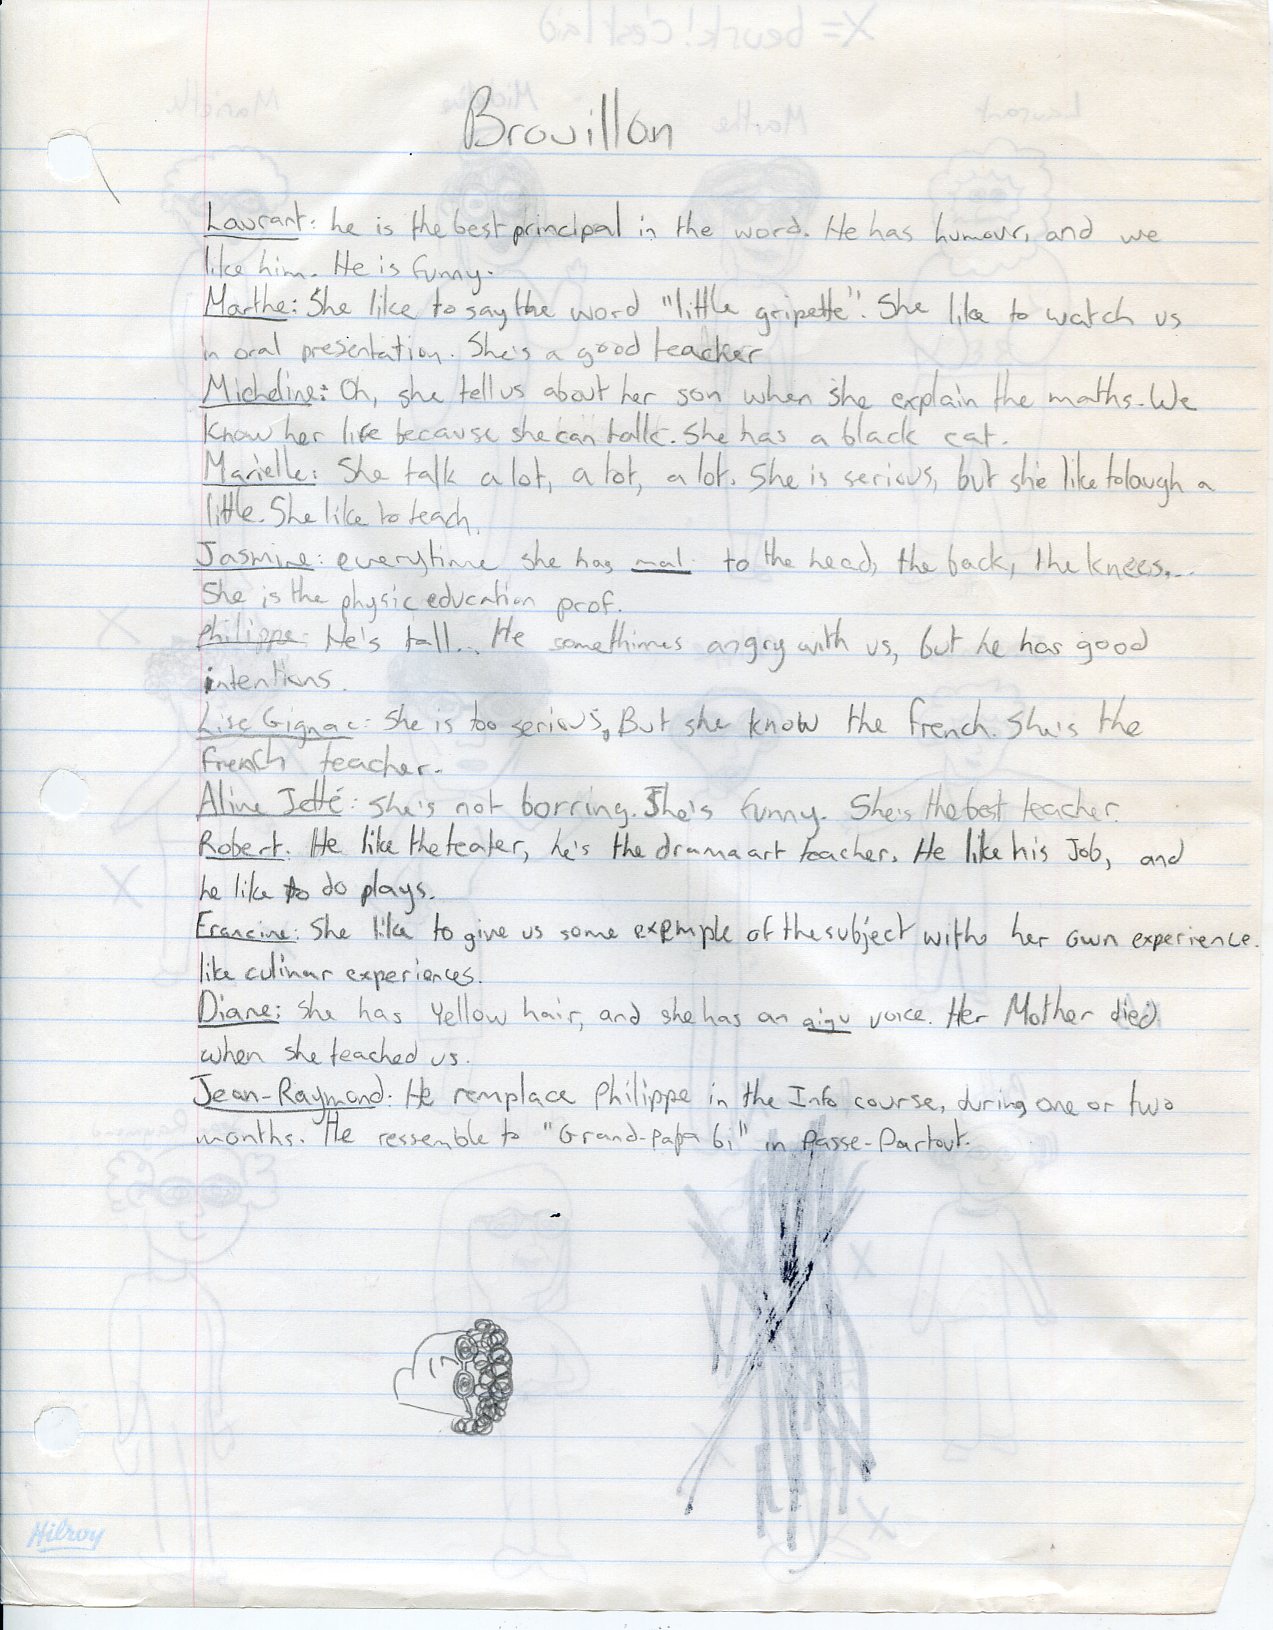 X= beurk! c'est laid
Laurant Marthe Micheline Marielle
Brouillon
Laurant: he is the best principal in the word. He has humour, and we
like him. He is funny.
Marthe: She like to say the word "little gripette". She like to watch us
in oral presentation. She's a good teacker
Micheline: Oh, she tell us about her son when she explain the maths. We
know her life because she can talk. She has a black cat.
Marielle: She talk a lot, a lot, a lot. She is serious, but she like to laugh a
little. She like to teach.
Jasmine: everytime she has mal to the head, the back, the knees...
She is the physic education prof.
Philippe: He's tall... He somethimes angry with us, but he has good
intentions.
Lise Gignac: She is too serious, But she know the french. She's the
french teacher.
Aline Jetté: She's not borring. She's funny. She's the best teacher.
Robert: He like the teater, he's the drama art teacher. He like his Job, and
he like to do plays.
Francine: She like to give us some exemple of the subject with her own experience.
like culinar experiences.
Diane: She has Yellow hair, and she has an aigu voice. Her Mother died
when she teached us.
Jean-Raymond: He remplace Philippe in the Info course, during one or two
months. He ressemble to "Grand-papa bi" in Passe-Partout.
Hilroy